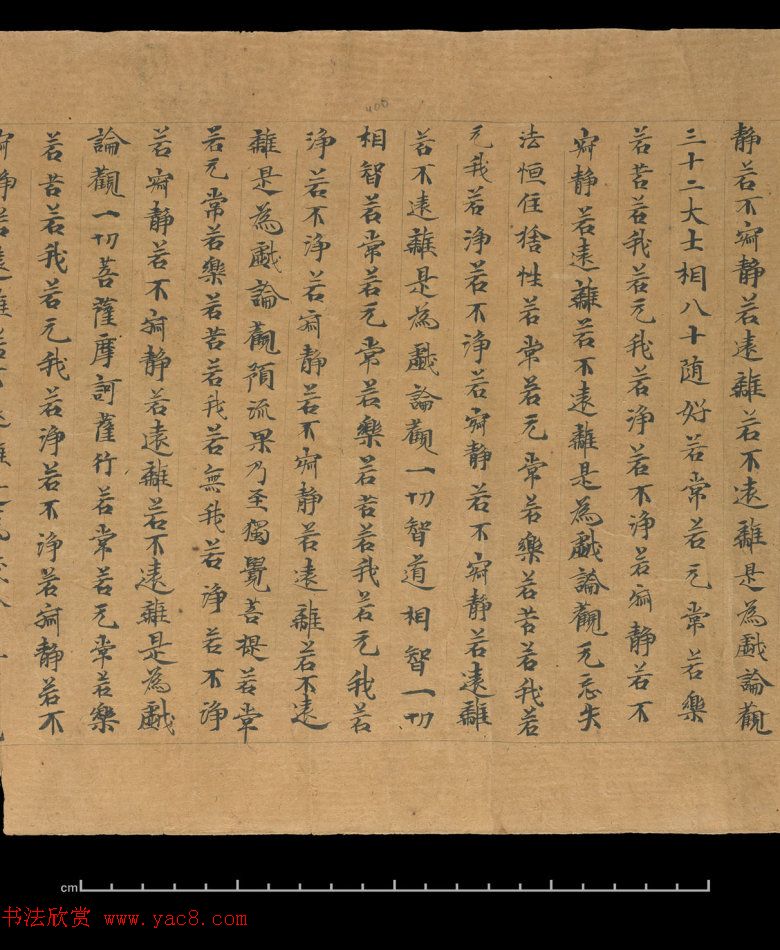 静若不寂静若遠離若不遠離是為戲論觀
三十二大士相八十随好若常若无常若樂
若苦若我若无我若淨若不淨若寂静若不
寂静若遠離若不遠離是為戲論觀无忘失
法恒住捨性若常若无常若樂若苦若我若
无我若淨若不淨若寂静若不寂静若遠離
若不遠離是為戲論觀一切智道相智一切
相智若常若无常若樂若苦若我若无我若
淨若不淨若寂静若不寂静若遠離若不遠
離是為戲論觀預流果乃至獨覺菩提若常
若无常若樂若苦若我若無我若淨若不淨
若寂静若不寂静若遠離若不遠離是為戲
論觀一切菩薩摩訶薩行若常若无常若樂
若苦若我若无我若淨若不淨若寂静若不
寂静若遠離若不遠離
400
cm
书法欣赏 www.yac8.com